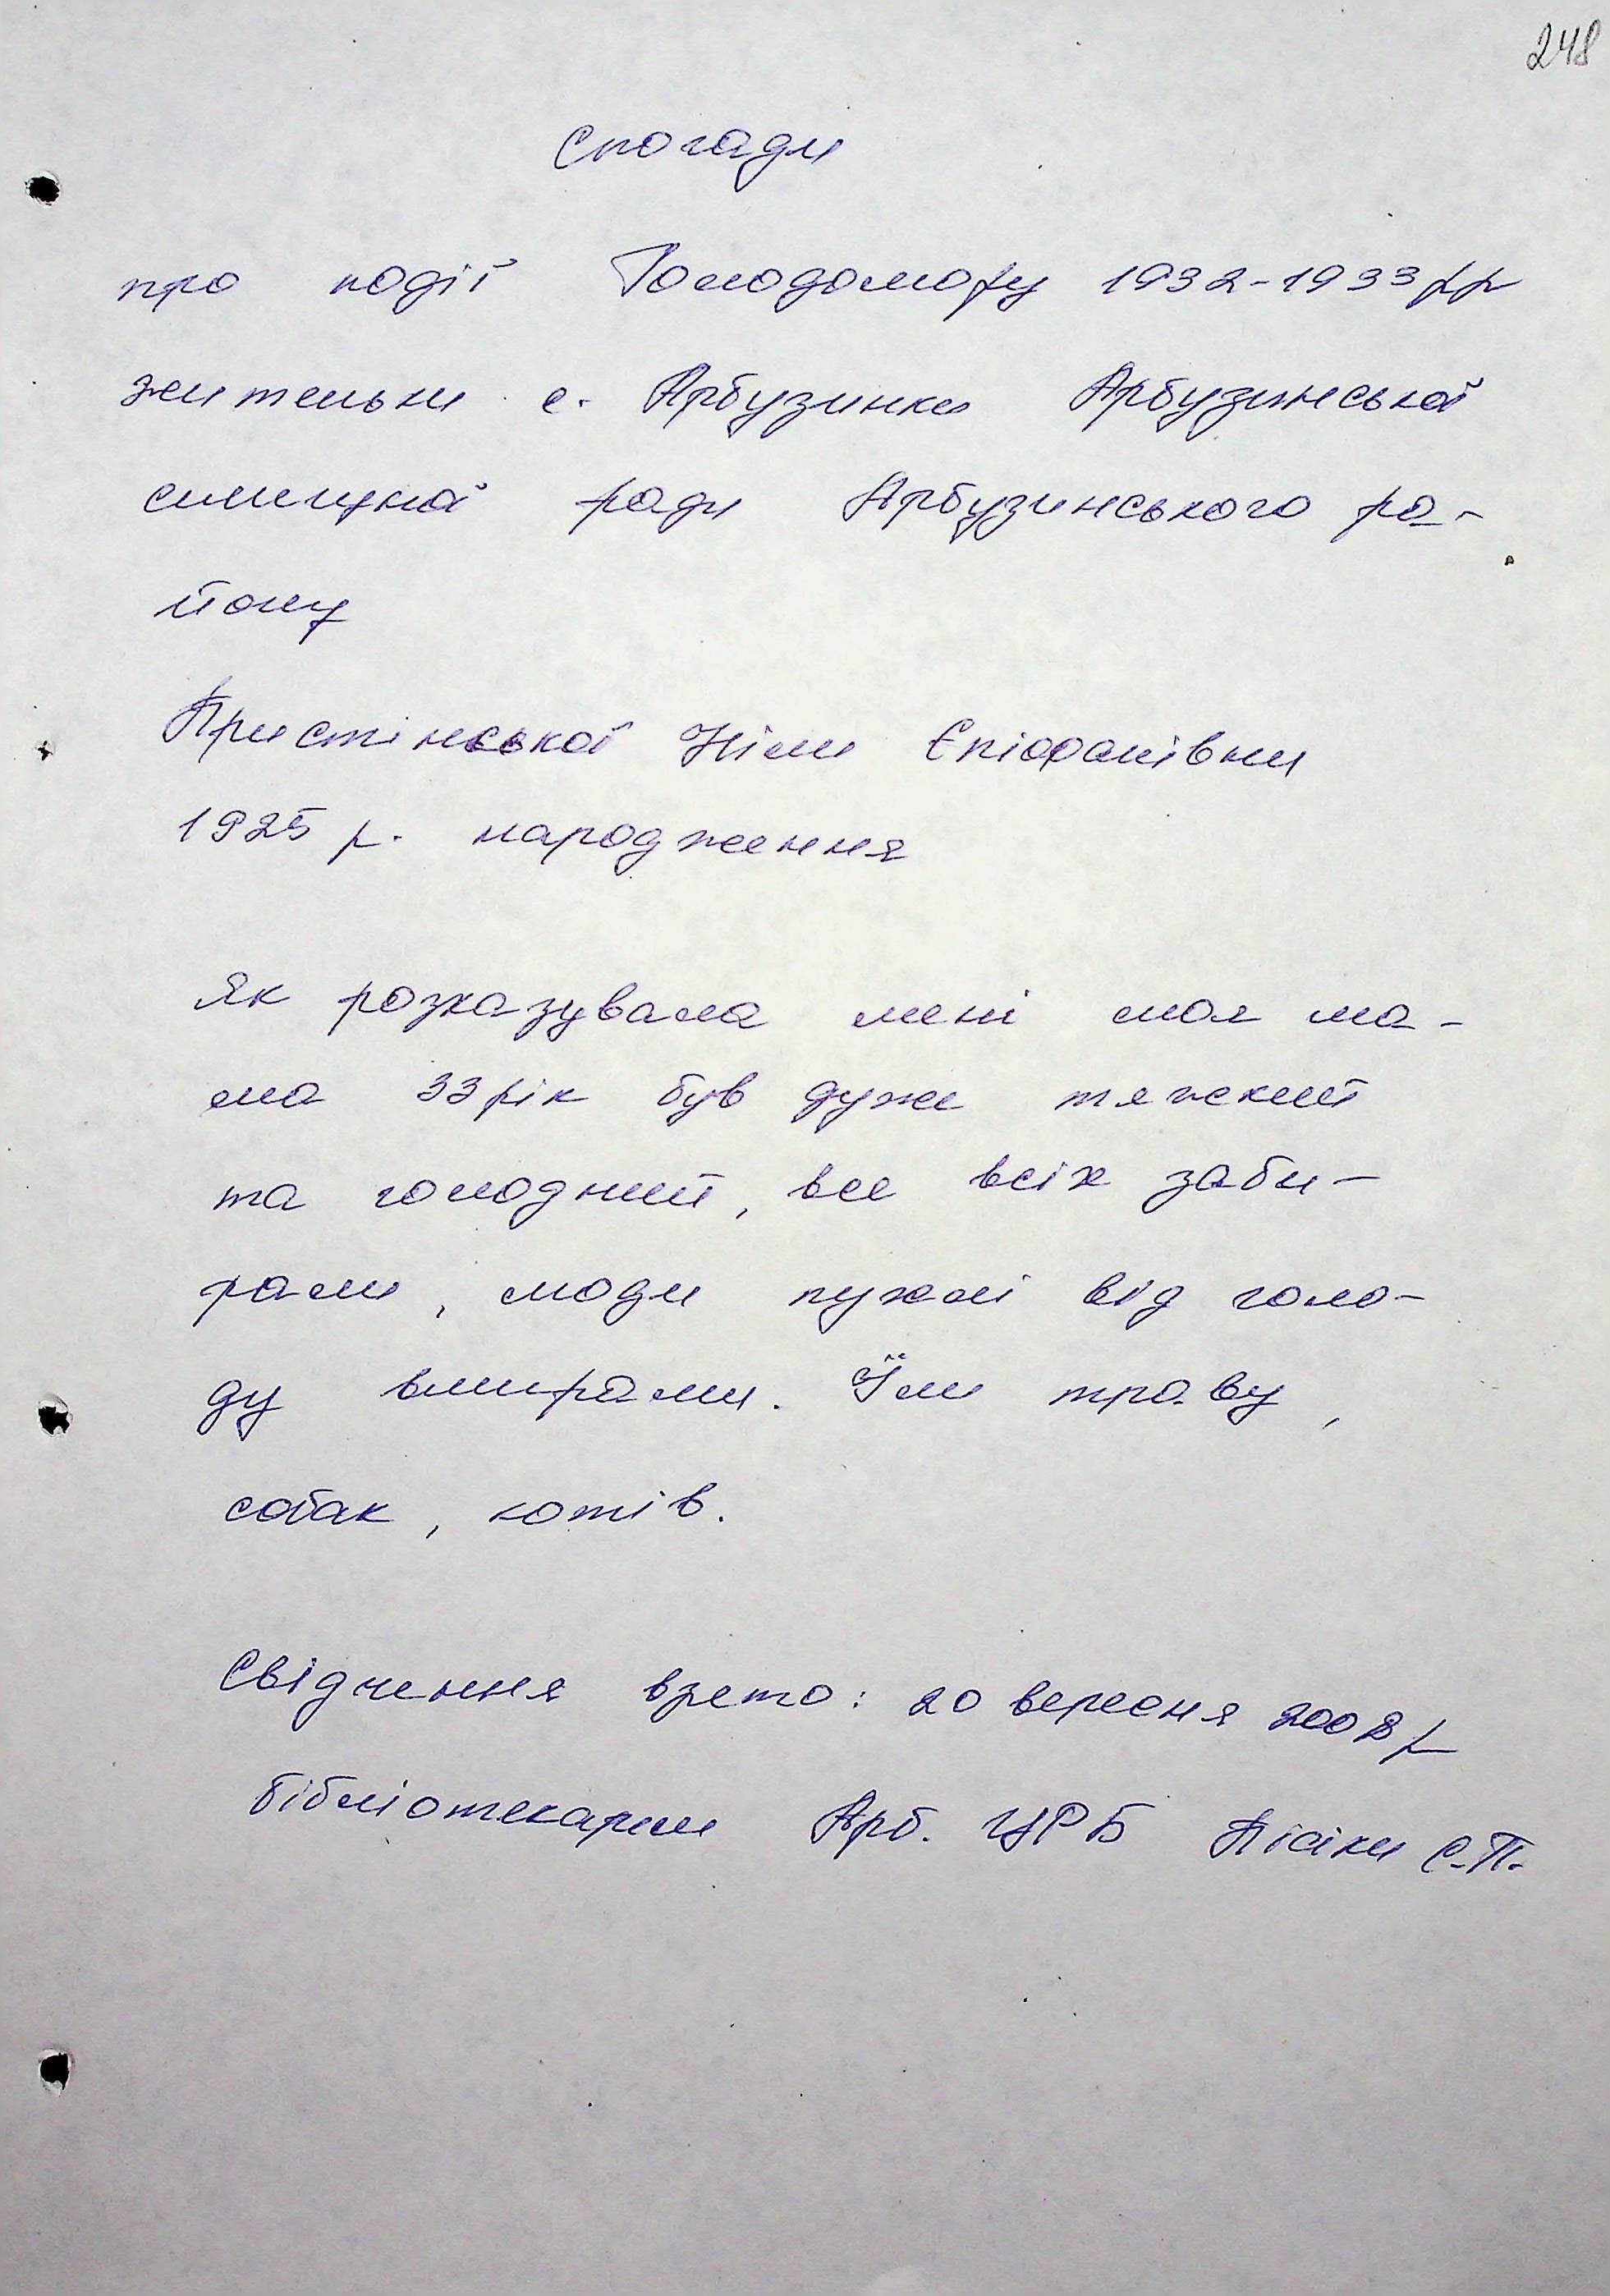 248
Спогади
про події Голодомору 1932-1933 рр
жительки с. Арбузинки Арбузинської
селищної ради Арбузинського ра-
йону
Пристінської Ніли Єпіфанівни
1925 р. народження
Як розказувала мені моя ма-
ма 33 рік був дуже тяжкий
та голодний, все всіх заби-
рали, люди пухлі від голо-
ду вмирали. Їли траву,
собак, котів.
Свідчення взято: 20 вересня 2008 р
бібліотекарем Арб. ЦРБ С.П.